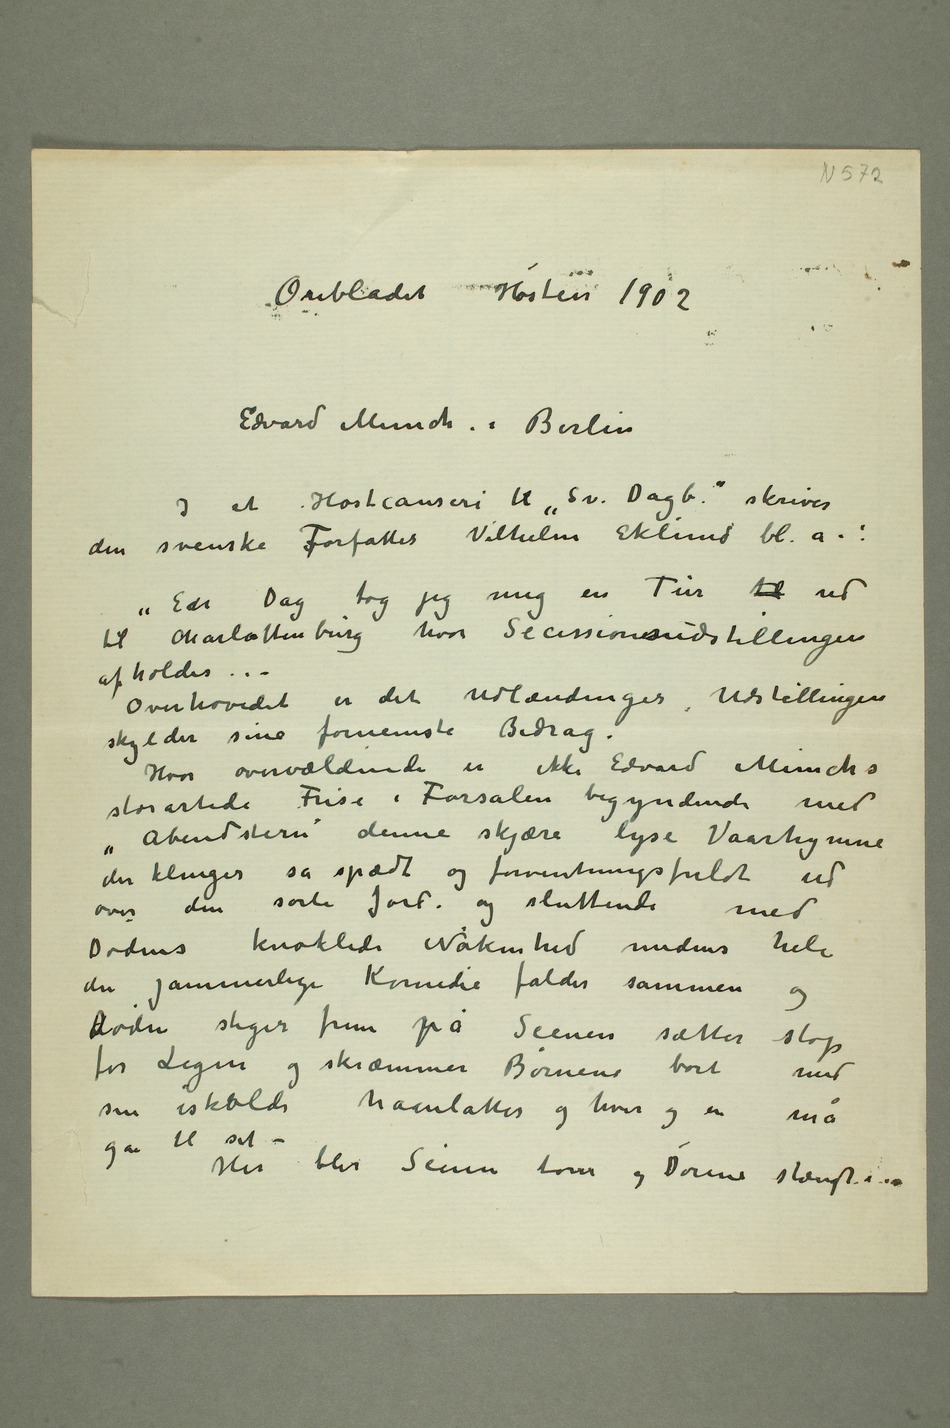 N 572
Ørebladet Høsten 1902
Edvard Munch. i Berlin
I et Høstcauseri til „Sv. Dagb.“ skriver
den svenske Forfatter Vilhelm Eklund bl. a. :
„ Een Dag tog jeg mig en Tur til ud
til Charlottenburg hvor Secessionsudstillingen
afholdes ...
Overhovedet er det Udlændinger, Udstillingen
skylder sine fornemste Bidrag.
Hvor overvældende er ikke Edvard Munchs
storartede Frise i Forsalen begyndende med
„ Abendstern“ denne skjære lyse Vaarhymne
der klinger så spædt og forventningsfuldt ud
over den sorte Jord. og sluttende med
Dødens knoklede Nåkenhed medens hele
den jammerlige Komedie falder sammen og
Døden stiger frem på Scenen sætter stop
for Legen og skræmmer Børnene bort med
sin iskolde haanlatter og hver og en må
gaa til sit –
Her blir Scenen tom og Dørene stængt ...